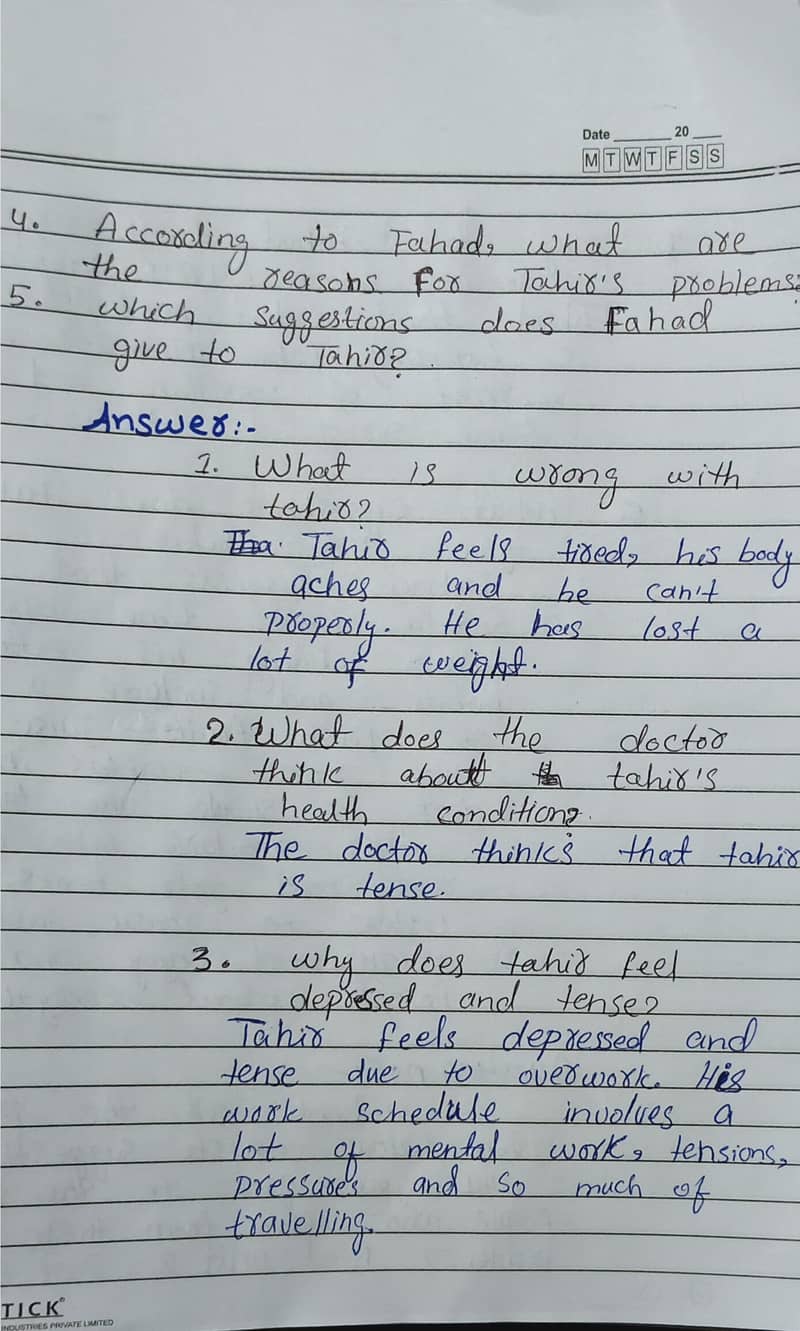 Date ______ 20 ___
M T W T F S S
4. According to Fahad, what are
the reasons For Tahir's problems?
5. which suggestions does Fahad
give to Tahir?
Answer:-
1. What is wrong with
tahir?
Tahir feels tired, his body
aches and he can't
properly. He has lost a
lot of weight.
2. What does the doctor
think about tahir's
health condition?
The doctor thinks that tahir
is tense.
3. why does tahir feel
depressed and tense?
Tahir feels depressed and
tense due to overwork. His
work schedule involves a
lot of mental work, tensions,
pressures and so much of
travelling.
TICK®
INDUSTRIES PRIVATE LIMITED